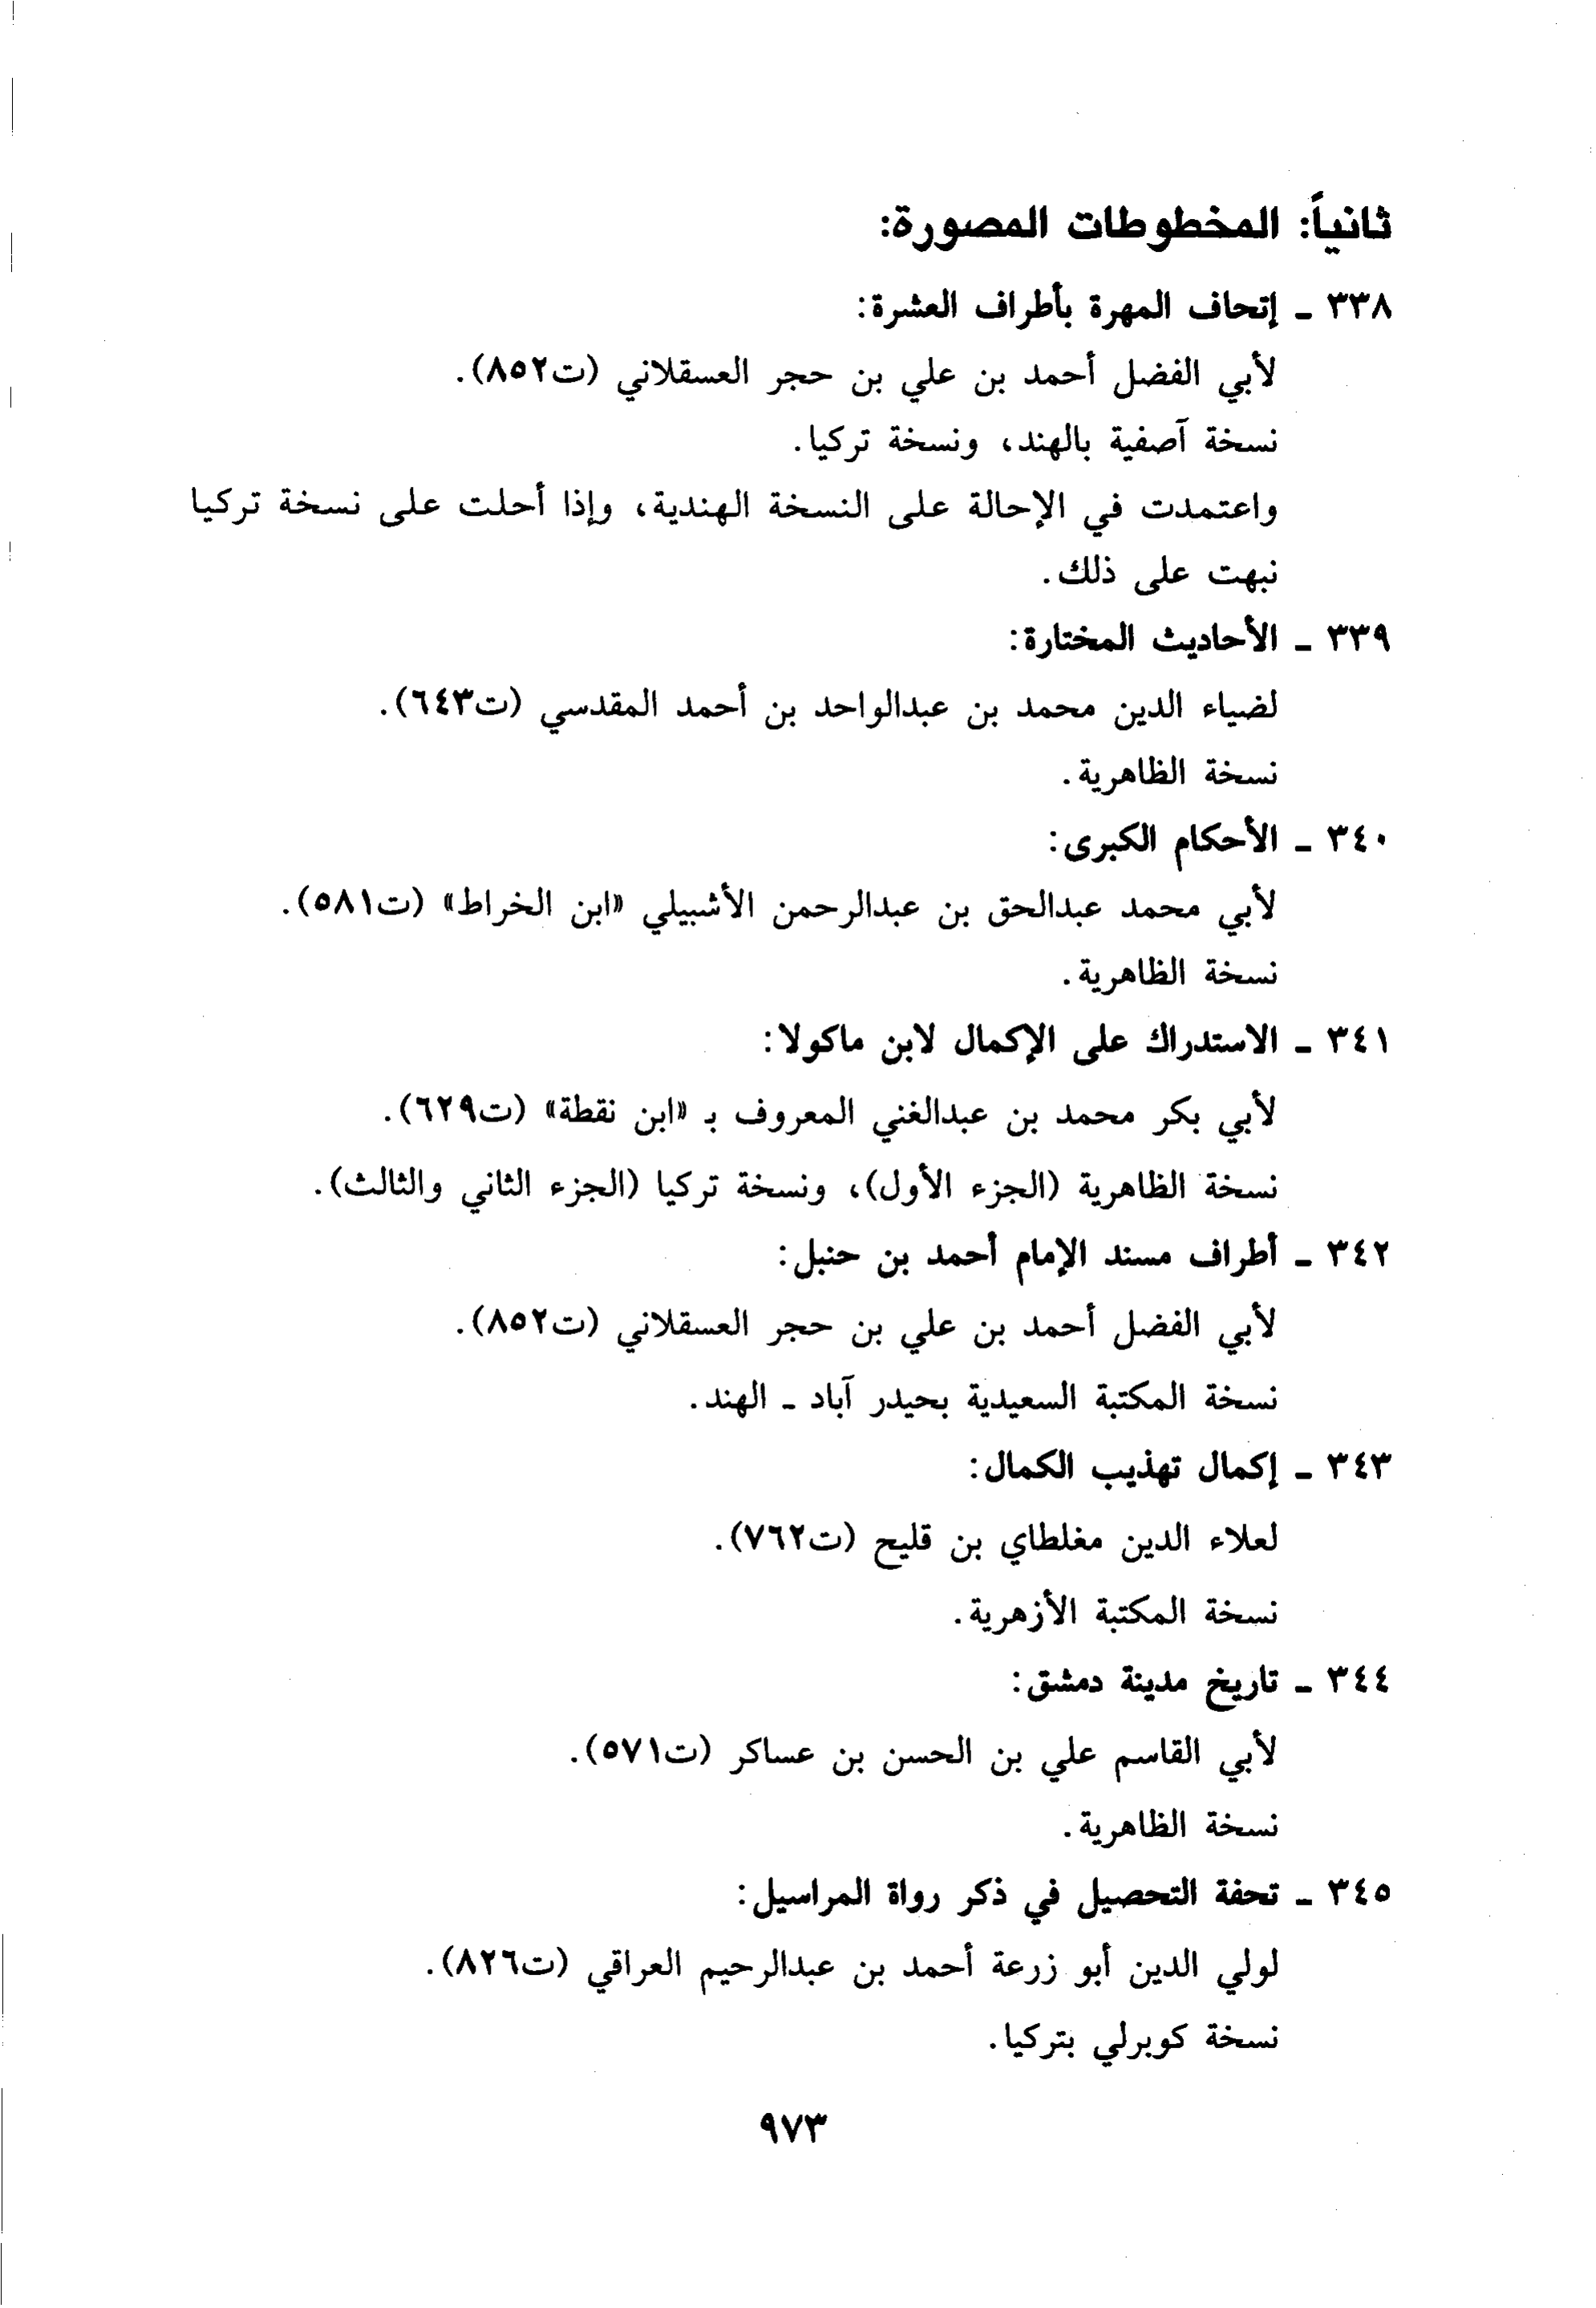 ثانياً: المخطوطات المصورة:
٣٣٨ - إتحاف المهرة بأطراف العشرة:
لأبي الفضل أحمد بن علي بن حجر العسقلاني (ت٨٥٢).
نسخة آصفية بالهند، ونسخة تركيا.
واعتمدت في الإحالة على النسخة الهندية، وإذا أحلت على نسخة تركيا
نبهت على ذلك.
٣٣٩ - الأحاديث المختارة:
لضياء الدين محمد بن عبدالواحد بن أحمد المقدسي (ت٦٤٣).
نسخة الظاهرية.
٣٤٠ - الأحكام الكبرى:
لأبي محمد عبدالحق بن عبدالرحمن الأشبيلي «ابن الخراط» (ت٥٨١).
نسخة الظاهرية.
٣٤١ - الاستدراك على الإكمال لابن ماكولا:
لأبي بكر محمد بن عبدالغني المعروف بـ «ابن نقطة» (ت٦٢٩).
نسخة الظاهرية (الجزء الأول)، ونسخة تركيا (الجزء الثاني والثالث).
٣٤٢ - أطراف مسند الإمام أحمد بن حنبل:
لأبي الفضل أحمد بن علي بن حجر العسقلاني (ت٨٥٢).
نسخة المكتبة السعيدية بحيدر آباد - الهند.
٣٤٣ - إكمال تهذيب الكمال:
لعلاء الدين مغلطاي بن قليح (ت٧٦٢).
نسخة المكتبة الأزهرية.
٣٤٤ - تاريخ مدينة دمشق:
لأبي القاسم علي بن الحسن بن عساكر (ت٥٧١).
نسخة الظاهرية.
٣٤٥ - تحفة التحصيل في ذكر رواة المراسيل:
لولي الدين أبو زرعة أحمد بن عبدالرحيم العراقي (ت٨٢٦).
نسخة كوبرلي بتركيا.
٩٧٣